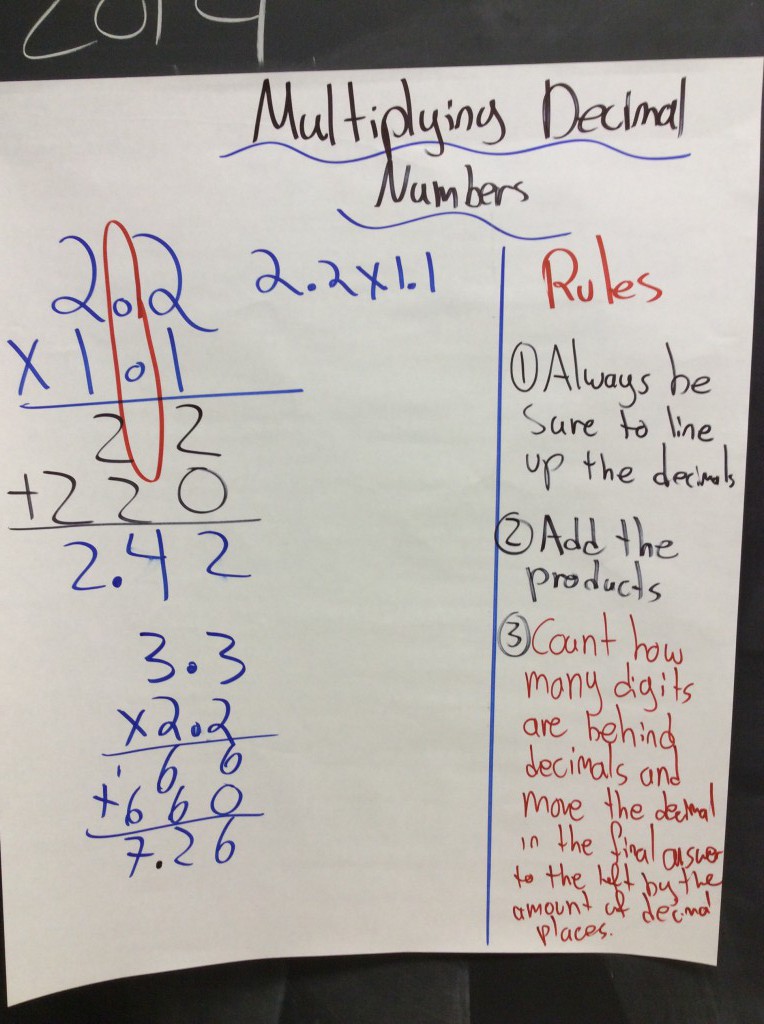 2014
Multiplying Decimal
Numbers
2.2
x 1.1
2 2
+2 2 0
2.4 2
2.2x1.1
3.3
x2.2
1 6 6
+6 6 0
7.26
Rules
① Always be
sure to line
up the decimals
② Add the
products
③ Count how
many digits
are behind
decimals and
move the decimal
in the final answer
to the left by the
amount of decimal
places.